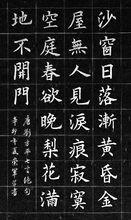 沙窗日落漸黃昏金
屋無人見淚痕寂寞
空庭春欲晚梨花滿
地不開門
唐劉方平七言絕句